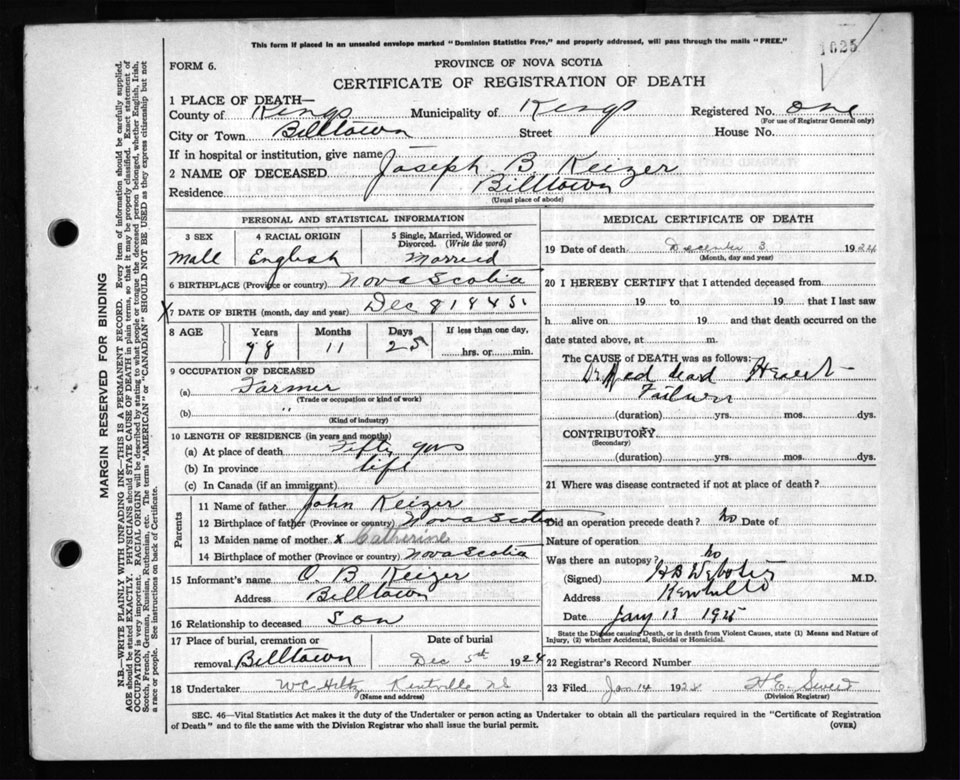 This form if placed in an unsealed envelope marked "Dominion Statistics Free," and properly addressed, will pass through the mails "FREE."
1625
FORM 6.
PROVINCE OF NOVA SCOTIA
CERTIFICATE OF REGISTRATION OF DEATH
1 PLACE OF DEATH—
County of Kings Municipality of Kings Registered No. one
(For use of Registrar General only)
City or Town Billtown Street House No.
If in hospital or institution, give name
2 NAME OF DECEASED Joseph B Keizer
Residence Billtown
(Usual place of abode)
PERSONAL AND STATISTICAL INFORMATION
3 SEX 4 RACIAL ORIGIN 5 Single, Married, Widowed or Divorced. (Write the word)
Male English Married
6 BIRTHPLACE (Province or country) Nova Scotia
X 7 DATE OF BIRTH (month, day and year) Dec 8 1845
8 AGE Years Months Days If less than one day,
78 11 25 hrs. or min.
9 OCCUPATION OF DECEASED
(a) Farmer
(Trade or occupation or kind of work)
(b) "
(Kind of industry)
10 LENGTH OF RESIDENCE (in years and months)
(a) At place of death Fifty yrs
(b) In province life
(c) In Canada (if an immigrant)
Parents
11 Name of father John Keizer
12 Birthplace of father (Province or country) Nova Scotia
13 Maiden name of mother x Catherine
14 Birthplace of mother (Province or country) Nova Scotia
15 Informant's name O. B. Keizer
Address Billtown
16 Relationship to deceased Son
17 Place of burial, cremation or removal. Billtown
Date of burial
Dec 5th 1924
18 Undertaker W C Hiltz Kentville NS
(Name and address)
MEDICAL CERTIFICATE OF DEATH
19 Date of death December 3 1924
(Month, day and year)
20 I HEREBY CERTIFY that I attended deceased from
19 to 19 that I last saw
h alive on 19 and that death occurred on the
date stated above, at m.
The CAUSE of DEATH was as follows:
dead Heart
Failure
(duration) yrs. mos. dys.
CONTRIBUTORY
(Secondary)
(duration) yrs. mos. dys.
21 Where was disease contracted if not at place of death?
Did an operation precede death? no Date of
Nature of operation
Was there an autopsy? no
(Signed) H B Webster M.D.
Address Kentville
Date Jany 13 1925
State the Disease causing Death, or in death from Violent Causes, state (1) Means and Nature of
Injury, (2) whether Accidental, Suicidal or Homicidal.
22 Registrar's Record Number
23 Filed Jan 14 192 H E
(Division Registrar)
SEC. 46—Vital Statistics Act makes it the duty of the Undertaker or person acting as Undertaker to obtain all the particulars required in the "Certificate of Registration
of Death" and to file the same with the Division Registrar who shall issue the burial permit. (OVER)
MARGIN RESERVED FOR BINDING
N.B.—WRITE PLAINLY WITH UNFADING INK—THIS IS A PERMANENT RECORD. Every item of information should be carefully supplied.
AGE should be stated EXACTLY. PHYSICIANS should STATE CAUSE OF DEATH in plain terms, so that it may be properly classified. Exact statement of
OCCUPATION is very important. RACIAL ORIGIN will be described by stating to what people or tongue the deceased person belonged, whether English, Irish,
Scotch, French, German, Russian, Ruthenian, etc. The terms "AMERICAN" or "CANADIAN" SHOULD NOT BE USED as they express citizenship but not
a race or people. See instructions on back of Certificate.